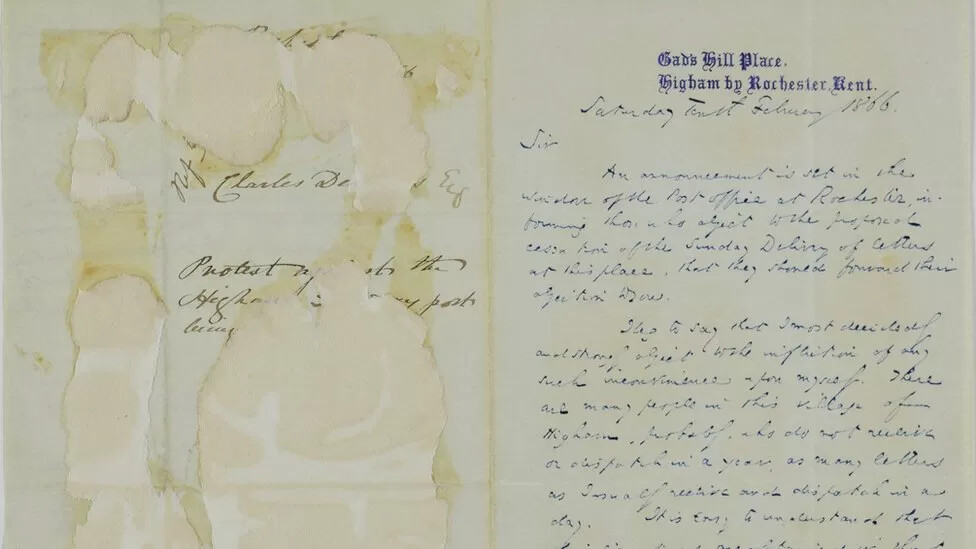 Charles D Esq
Protest the
High post
being
Gad's Hill Place,
Higham by Rochester, Kent.
Saturday tenth February 1866.
Sir
An announcement is set in the
window of the Post office at Rochester, in-
forming those who object to the proposed
cessation of the Sunday Delivery of letters
at this place, that they should forward their
objection to you.
I beg to say that I most decidedly
and strongly object to the infliction of any
such inconvenience upon myself. There
are many people in this village of
Higham, probably, who do not receive
or dispatch in a year, as many letters
as I usually receive and dispatch in a
day. It is easy to understand that